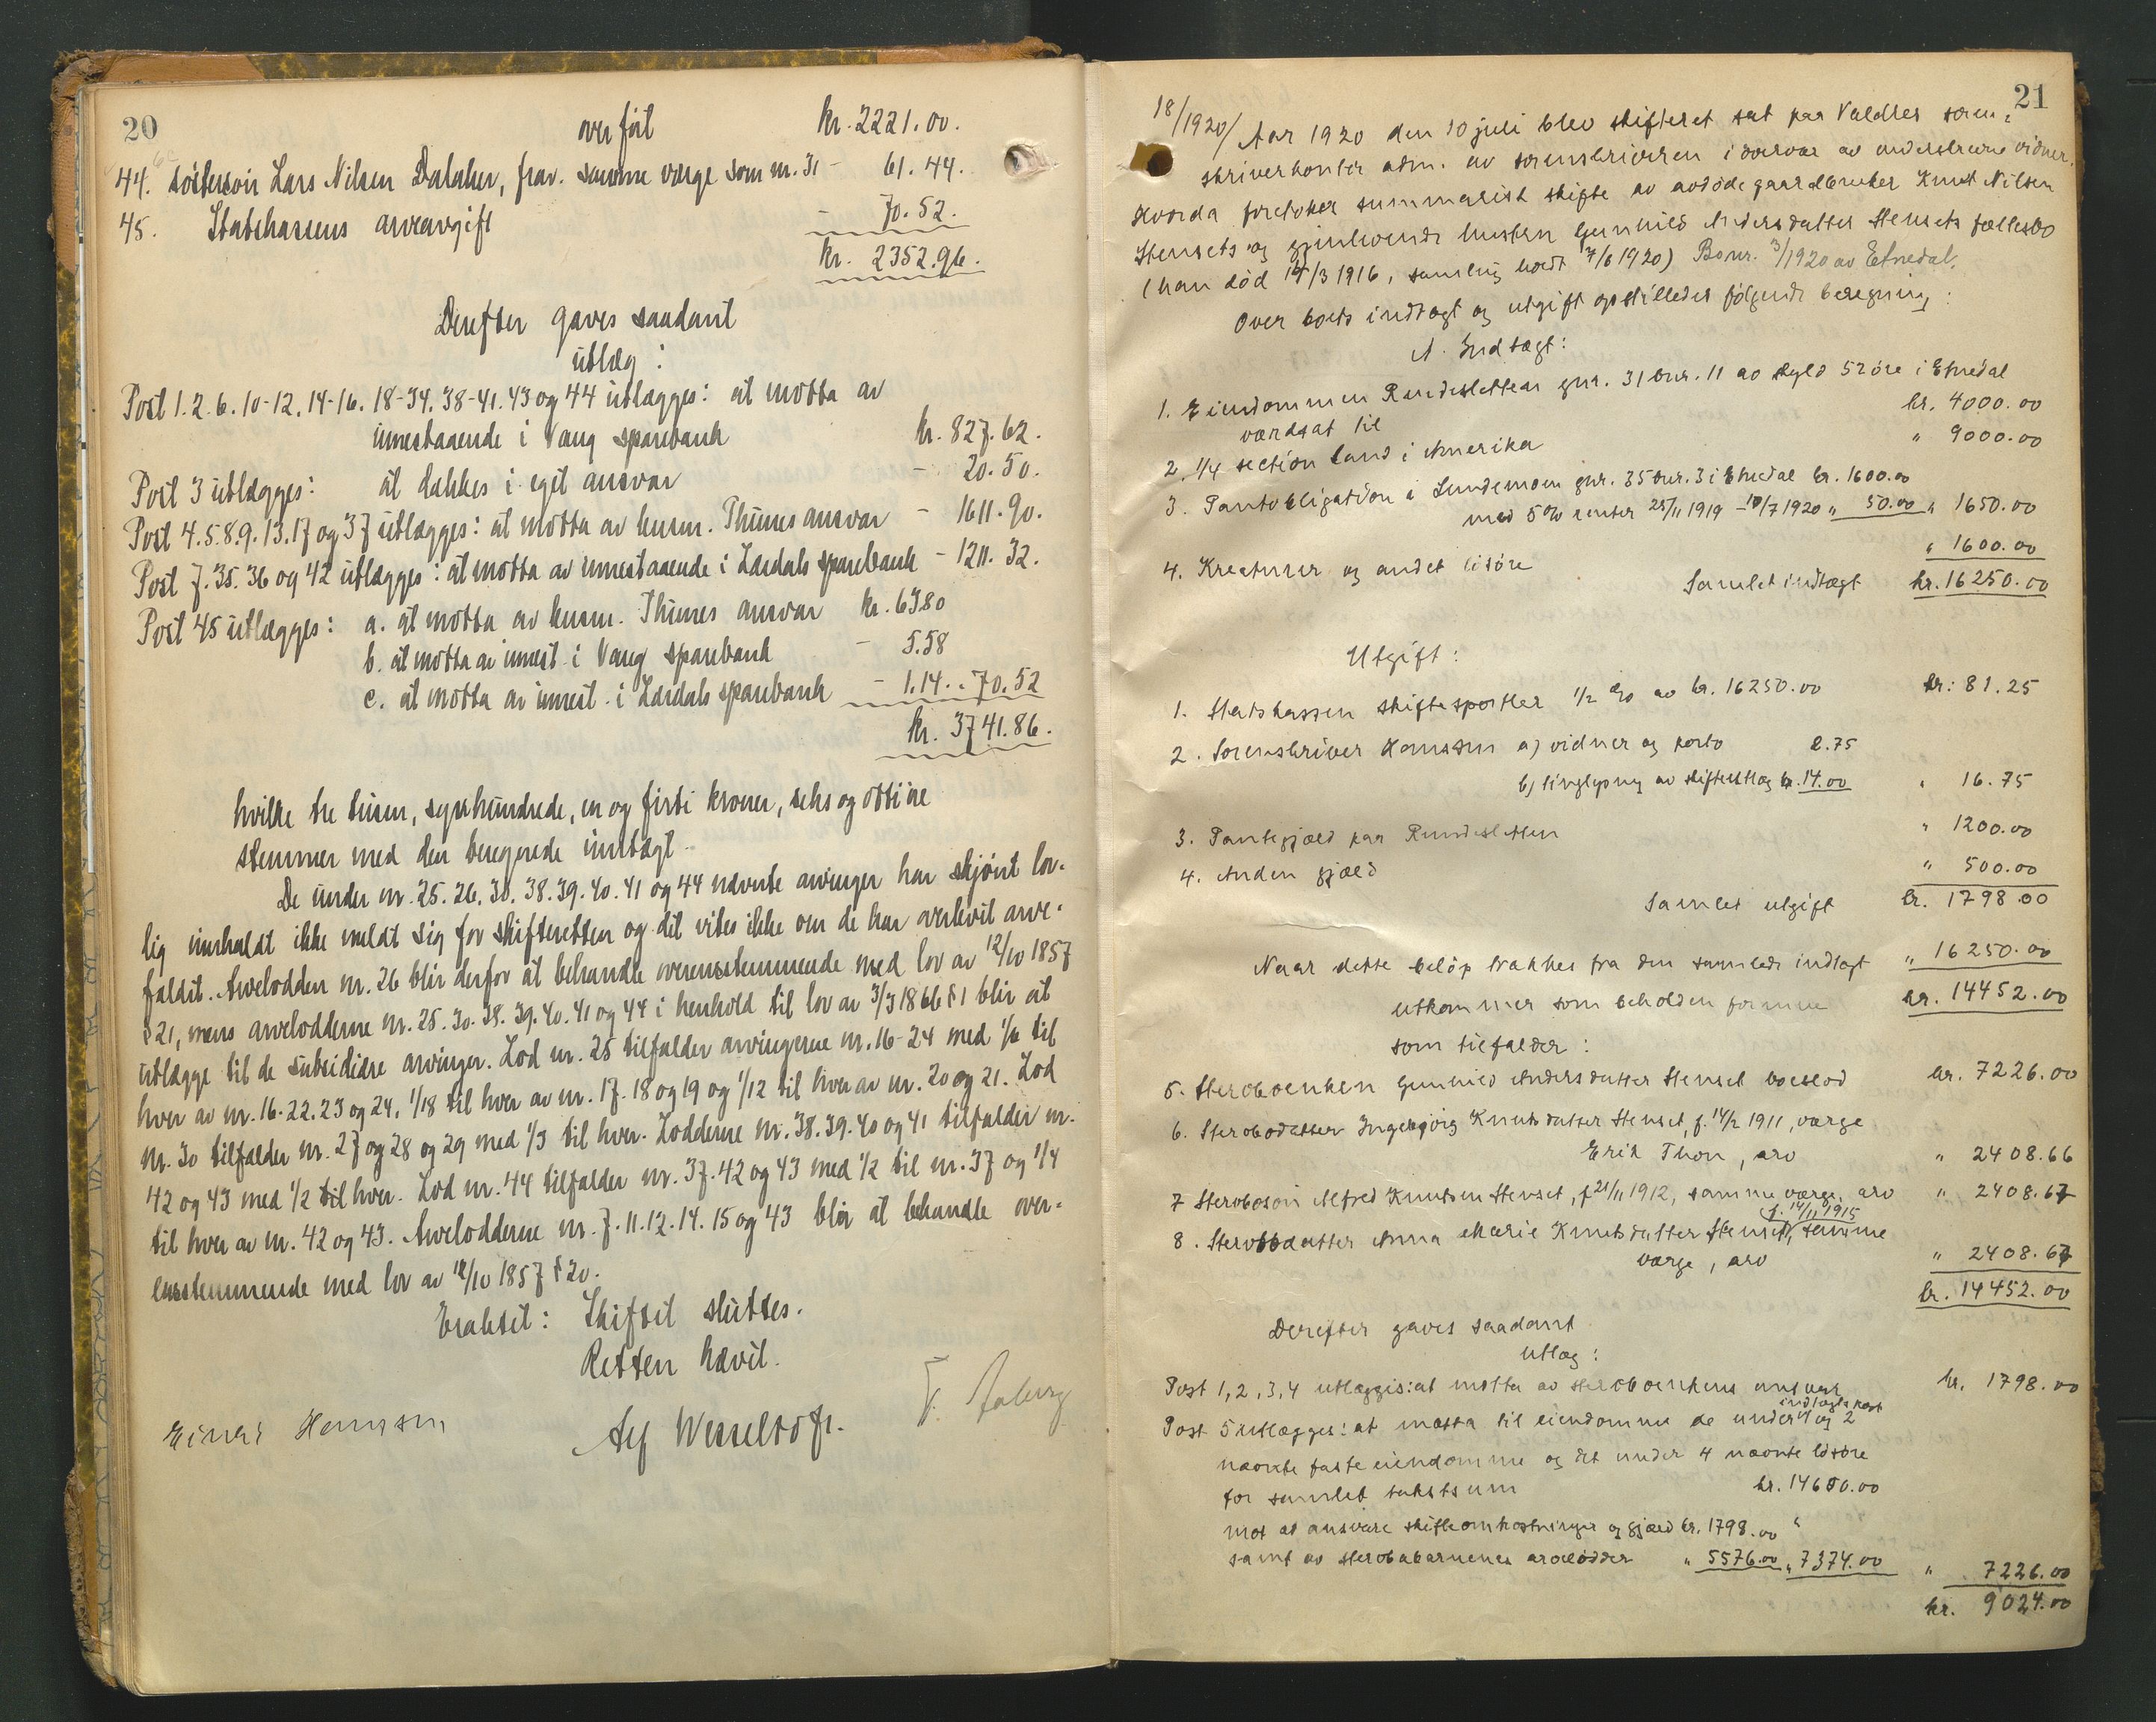 20
overført kr. 2221.00.
44. søstersøn Lars Nilsen Dalaker, frav. samme værge som nr. 31 - 61.44.
45. Statskassens arveavgift - 70.52.
kr. 2352.96.
Derefter gaves saadant
utlæg:
Post 1. 2. 6. 10-12. 14-16. 18-34. 38-41. 43 og 44 utlægges: at motta av
innestaaende i Vang sparebank kr. 827.62.
Post 3 utlægges: at dækkes i eget ansvar - 20.50.
Post 4. 5. 8. 9. 13. 17 og 37 utlægges: at motta av kusm. Thunes ansvar - 1611.90.
Post 7. 35. 36 og 42 utlægges: at motta av innestaaende i Lærdals sparebank - 1211.32.
Post 45 utlægges: a. at motta av kusm. Thunes ansvar kr. 63.80
b. at motta av innest. i Vang sparebank - 5.58
c. at motta av innest. i Lærdals sparebank - 1.14 . - 70.52
kr. 3741.86.
hvilke tre tusen, syvhundrede, en og firti kroner, seks og otti øre
stemmer med den beregnede inntægt.
De under nr. 25. 26. 30. 38. 39. 40. 41 og 44 nævnte arvinger har skjønt lov-
lig innkaldt ikke meldt sig for skifteretten og det vites ikke om de har overlevet arve-
faldet. Arvelodden nr. 26 blir derfor at behandle overensstemmende med lov av 12/10 1857
§ 21, mens arvelodderne nr. 25. 30. 38. 39. 40. 41 og 44 i henhold til lov av 3/3 1866 § 1 blir at
utlægge til de subsidiære arvinger. Lod nr. 25 tilfalder arvingerne nr. 16-24 med 1/6 til
hver av nr. 16. 22. 23 og 24, 1/18 til hver av nr. 17. 18 og 19 og 1/12 til hver av nr. 20 og 21. Lod
nr. 30 tilfalder nr. 27 og 28 og 29 med 1/3 til hver. Lodderne nr. 38. 39. 40 og 41 tilfalder nr.
42 og 43 med 1/2 til hver. Lod nr. 44 tilfalder nr. 37. 42 og 43 med 1/2 til nr. 37 og 1/4
til hver av nr. 42 og 43. Arvelodderne nr. 7. 11. 12. 14. 15 og 43 blir at behandle over-
ensstemmende med lov av 12/10 1857 § 20.
Eraktet: Skiftet sluttes.
Retten hævet.
Einar Hansson Alf Wesseltoft.
21
18/1920/ Aar 1920 den 10 juli blev skifteret sat paa Valdres soren-
skriverkontor adm. av sorenskriveren i overvær av underskrevne vidner.
Hvorda foretokes summarisk skifte av avdøde gaardbruker Knut Nilsen
Stensets og gjenlevende hustru Gunhild Andersdatter Stensets fællesbo
(han død 15/3 1916, samling hævet 7/6 1920) Bonr. 3/1920 av Etnedal.
Over boets indtægt og utgift opstilledes følgende beregning:
A. Indtægt:
1. Eiendommen Rundesletten gnr. 31 bnr. 11 av skyld 52 øre i Etnedal
værdsat til kr. 4000.00
2. 1/4 section land i Amerika " 9000.00
3. Pantobligation i Lundemoen gnr. 35 bnr. 3 i Etnedal kr. 1600.00
med 5 % renter 25/11 1919 - 10/7 1920 " 50.00 " 1650.00
4. Kreaturer og andet løsøre " 1600.00
Samlet indtægt kr. 16250.00
Utgift:
1. Statskassen skiftesportler 1/2 % av kr. 16250.00 kr. 81.25
2. Sorenskriver Hansson a) vidner og porto 2.75
b) tinglysning av skifteutlæg kr. 14.00 " 16.75
3. Pantegjæld paa Rundesletten " 1200.00
4. Anden gjæld " 500.00
Samlet utgift kr. 1798.00
Naar dette beløp trækkes fra den samlede indtægt " 16250.00
utkommer som beholden formue kr. 14452.00
som tilfalder:
5. Sterboenken Gunhild Andersdatter Stenset boeslod kr. 7226.00
6. Sterbodatter Ingebjørg Knutsdatter Stenset, f. 14/2 1911, værge
Erik Thon, arv " 2408.66
7 Sterbosøn Alfred Knutsen Stenset, f 21/11 1912, samme værge, arv " 2408.67
f. 14/11 1915
8. Sterbodatter Anna Marie Knutsdatter Stenset, samme
værge, arv " 2408.67
kr. 14452.00
Derefter gaves saadant
utlæg:
Post 1, 2, 3, 4 utlægges: at motta av sterboenkens ansvar kr. 1798.00
indtægts post
Post 5 utlægges: at motta til eiendomme de under 1 og 2
nævnte faste eiendomme og det under 4 nævnte løsøre
for samlet takstsum kr. 14600.00
mot at ansvare skifteomkostninger og gjæld kr. 1798.00 "
samt av sterbobarnenes arvelodder " 5576.00 " 7374.00 " 7226.00
kr. 9024.00